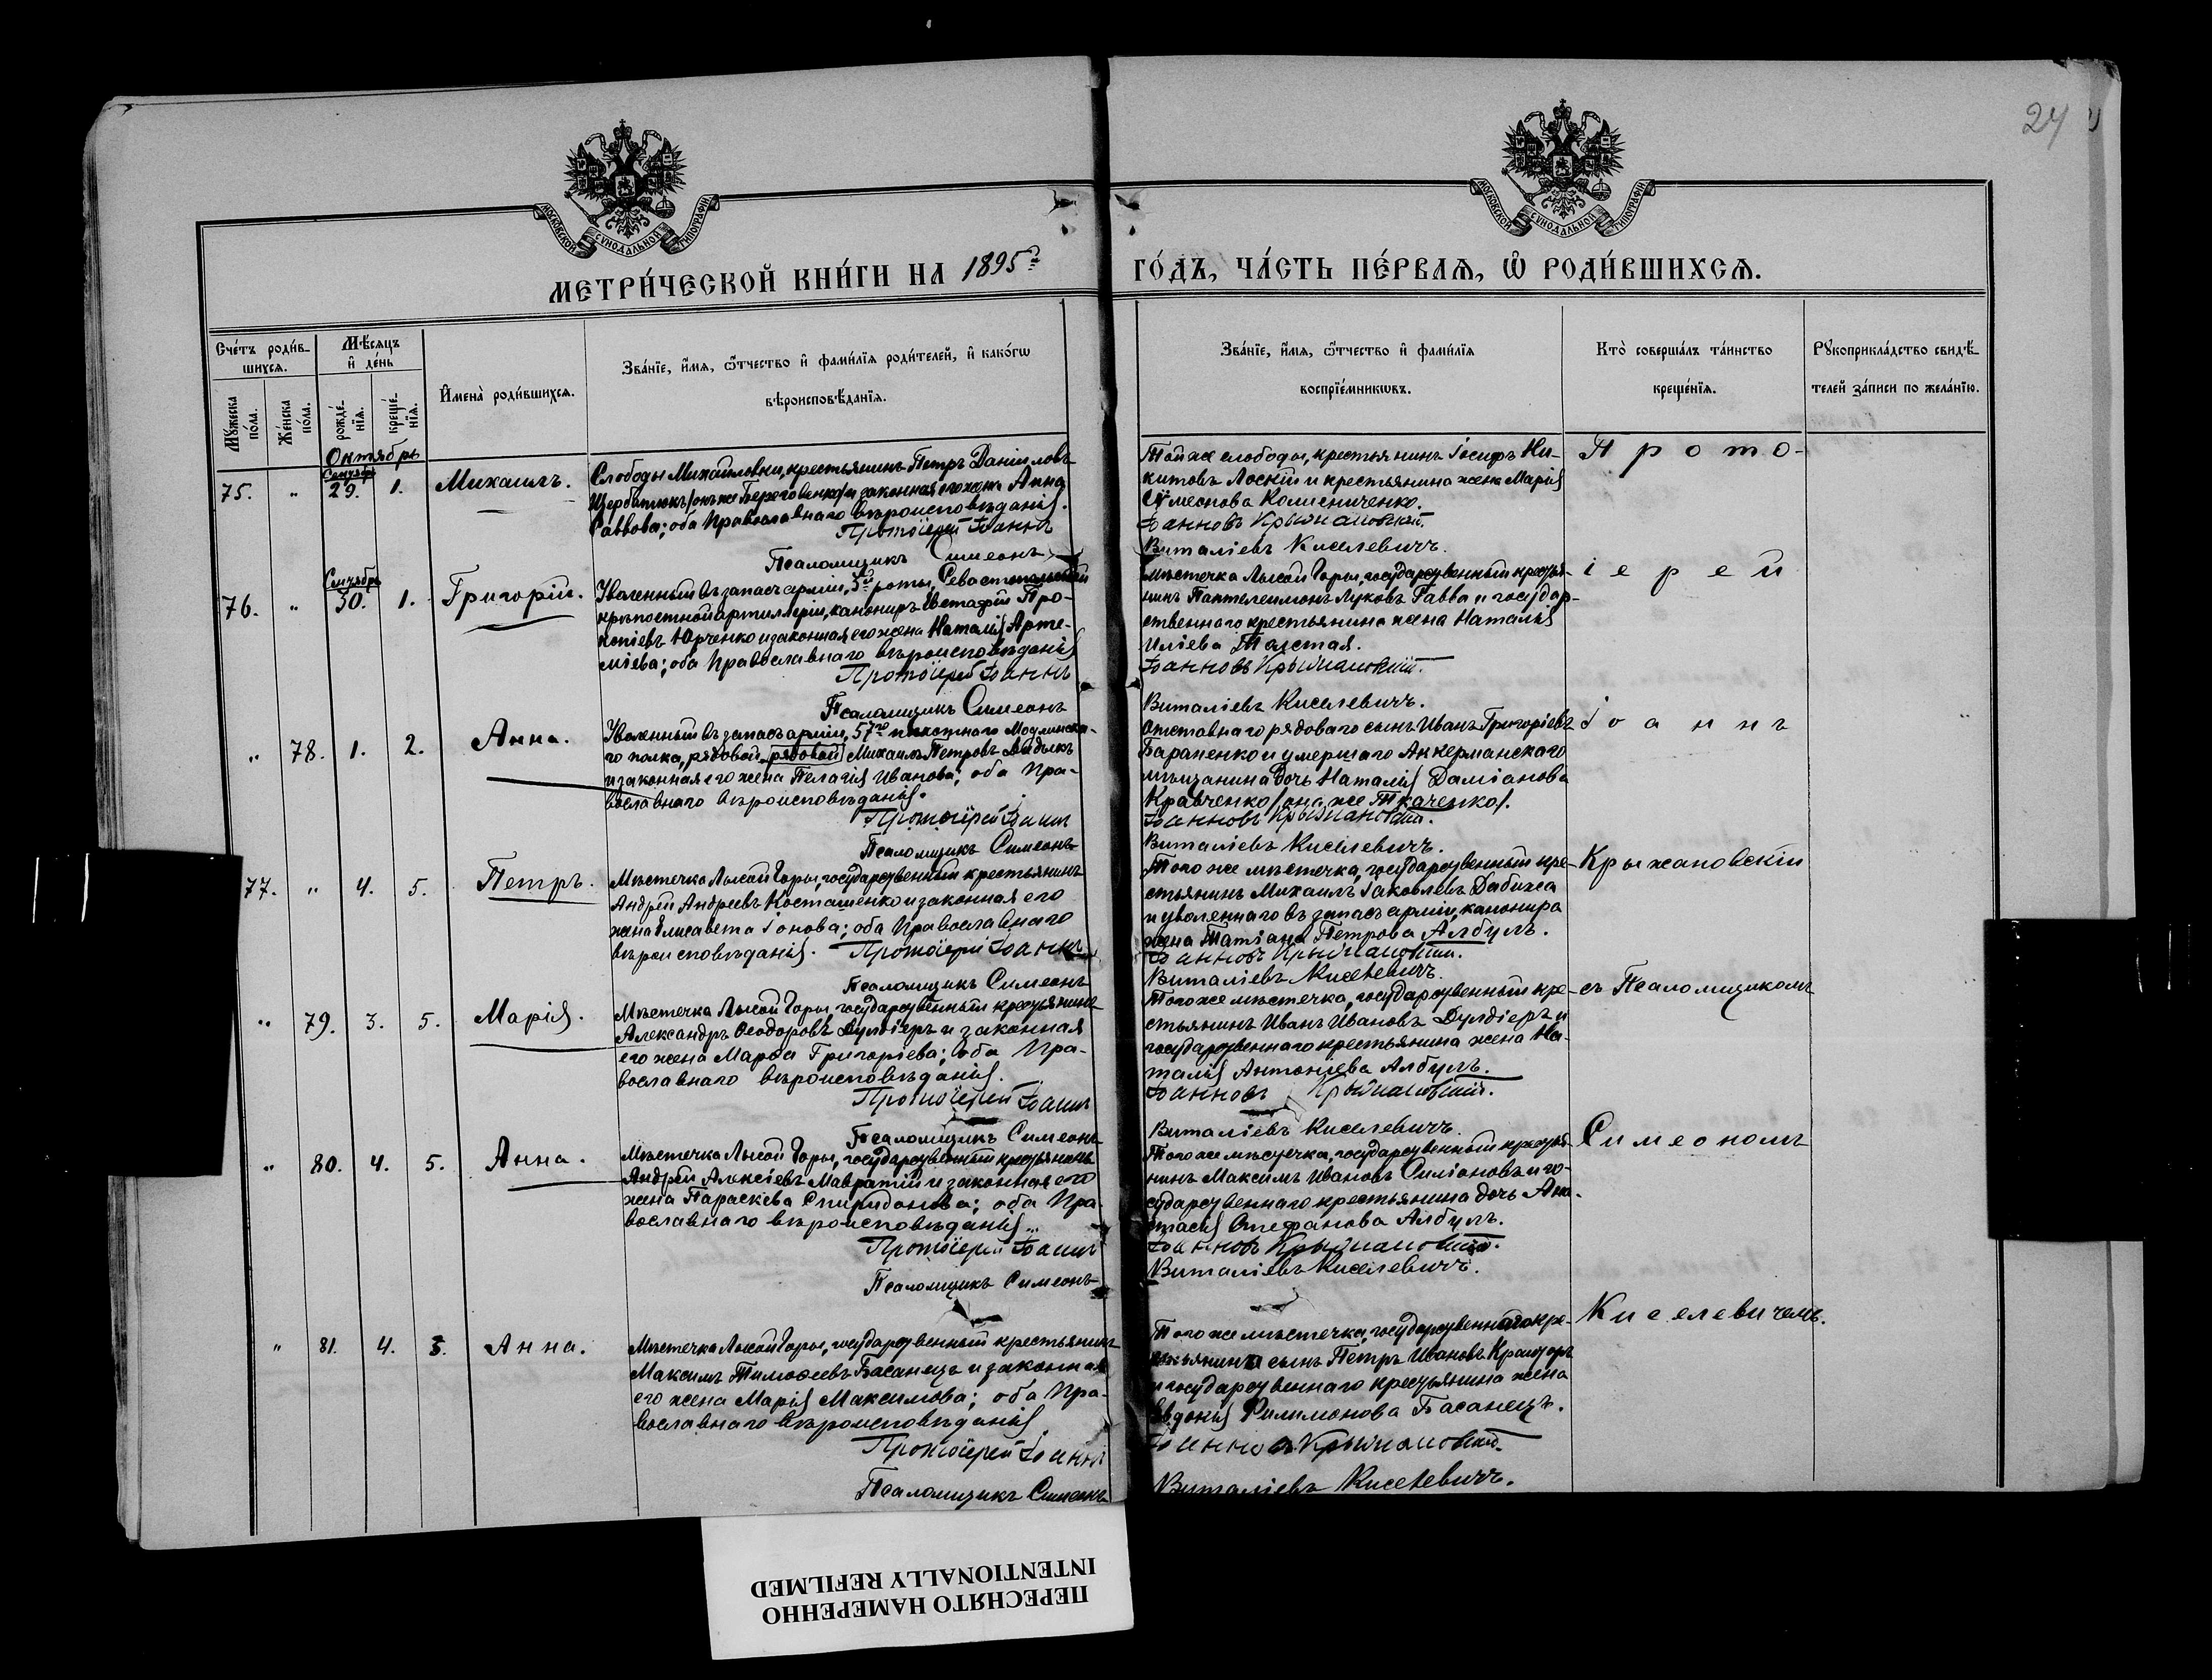 24
МОСКОВСКОЙ СѴНОДАЛЬНОЙ ТИПОГРАФІИ
МОСКОВСКОЙ СѴНОДАЛЬНОЙ ТИПОГРАФІИ
МЕТРИ́ЧЕСКОЙ КНИ́ГИ НА 1895й
ГО́ДЪ, ЧА́СТЬ ПЕ́РВАЯ, Ѡ РОДИ́ВШИХСЯ.
Сче́тъ роди́в-
шихся.
Мѣ́сяцъ
и де́нь
Му́жеска по́ла.
Же́нска по́ла.
рожде́-
нія.
креще́-
нія.
Имена̀ роди́вшихся.
Зва́нїе, и́мя, ѻ҆́тчество и фами́лїя роди́телей, и како́гѡ
вѣроисповѣ́данїя.
Зва́нїе, и́мя, ѻ҆́тчество и фами́лїя
воспрїе́мникѡвъ.
Кто̀ соверша́лъ та́инство
креще́нїя.
Рꙋкоприкла́дство свидѣ́-
телей за́писи по жела́нїю.
Октябрь
75. " Сентября 29. 1. Михаилъ.
Слободы Михайловки, крестьянинъ Петръ Даніиловъ
/онъ же Береговенко/ и законная его жена Анна
Саввова; оба Православнаго вѣроисповѣданія.
Протоіерей Іоаннъ
Псаломщикъ Симеонъ
Той же слободы, крестьянинъ Іосифъ Ни-
китовъ Лоскій и крестьянина жена Марія
Сумеонова Колисниченко.
Іанновъ Крыжановскій.
Виталіевъ Киселевичъ.
Прото-
76. " Сентября 30. 1. Григорій.
Уволенный въ запасъ арміи, 3й роты, Севастопольской
крѣпостной артиллеріи, канониръ Евстафій Про-
копіевъ Юрченко и законная его жена Наталія Арте-
міева; оба Православнаго вѣроисповѣданія
Протоіерей Іоаннъ
Псаломщикъ Симеонъ
Мѣстечка Лысой Горы, государственный крестья-
нинъ Пантелеимонъ Луковъ Савва и государ-
ственнаго крестьянина жена Наталія
Иліева Толстая.
Іанновъ Крыжановскій.
Виталіевъ Киселевичъ.
іерей
" 78. 1. 2. Анна.
Уволенный въ запасъ арміи, 57го пѣхотнаго Модлинска-
го полка, рядовой рядовой Михаилъ Петровъ
и законная его жена Пелагія Иванова; оба Пра-
вославнаго вѣроисповѣданія.
Протоіерей Іоаннъ
Псаломщикъ Симеонъ
Отставнаго рядоваго сынъ Иванъ Григоріевъ
Бараненко и умершаго Аккерманскаго
мѣщанина дочь Наталія Даміанова
Кравченко /она же Ткаченко/.
Іанновъ Крыжановскій.
Виталіевъ Киселевичъ.
Іоаннъ
77. " 4. 5. Петръ.
Мѣстечка Лысой Горы, государственный крестьянинъ
Андрей Андреевъ Косташенко и законная его
жена Елисавета Іонова; оба Православнаго
вѣроисповѣданія. Протоіерей Іоаннъ
Псаломщикъ Симеонъ
Того же мѣстечка, государственный кре-
стьянинъ Михаилъ Іаковлевъ Дабижа
и уволеннаго въ запасъ арміи, канонира
жена Татіана Петрова Албулъ.
Іанновъ Крыжановскій.
Виталіевъ Киселевичъ.
Крыжановскій
" 79. 3. 5. Марія.
Мѣстечка Лысой Горы, государственный крестьянинъ
Александръ Ѳеодоровъ Дулдіеръ и законная
его жена Марѳа Григоріева; оба Пра-
вославнаго вѣроисповѣданія.
Протоіерей Іоаннъ
Псаломщикъ Симеонъ
Того же мѣстечка, государственный кре-
стьянинъ Иванъ Ивановъ Дулдіеръ и
государственнаго крестьянина жена На-
талія Антоніева Албулъ.
Іанновъ Крыжановскій.
Виталіевъ Киселевичъ.
съ Псаломщикомъ
" 80. 4. 5. Анна.
Мѣстечка Лысой Горы, государственный крестьянинъ
Андрей Алексіевъ Мавратій и законная его
жена Параскева Спиридонова; оба Пра-
вославнаго вѣроисповѣданія.
Протоіерей Іоаннъ
Псаломщикъ Симеонъ
Того же мѣстечка, государственный крестья-
нинъ Максимъ Ивановъ Силіановъ и го-
сударственнаго крестьянина дочь Ана-
стасія Стефанова Албулъ.
Іанновъ Крыжановскій.
Виталіевъ Киселевичъ.
Симеономъ
" 81. 4. 5. Анна.
Мѣстечка Лысой Горы, государственный крестьянинъ
Максимъ Тимоѳеевъ Басанецъ и законная
его жена Марія Максимова; оба Пра-
вославнаго вѣроисповѣданія
Протоіерей Іоаннъ
Псаломщикъ Симеонъ
Того же мѣстечка, государственнаго кре-
стьянина сынъ Петръ Ивановъ
и государственнаго крестьянина жена
Евдокія Филимонова Басанецъ.
Іанновъ Крыжановскій.
Виталіевъ Киселевичъ.
Киселевичемъ.
ПЕРЕСНЯТО НАМЕРЕННО
INTENTIONALLY REFILMED